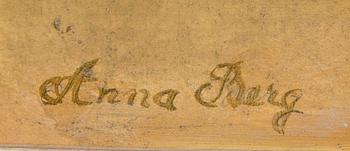 Anna Berg